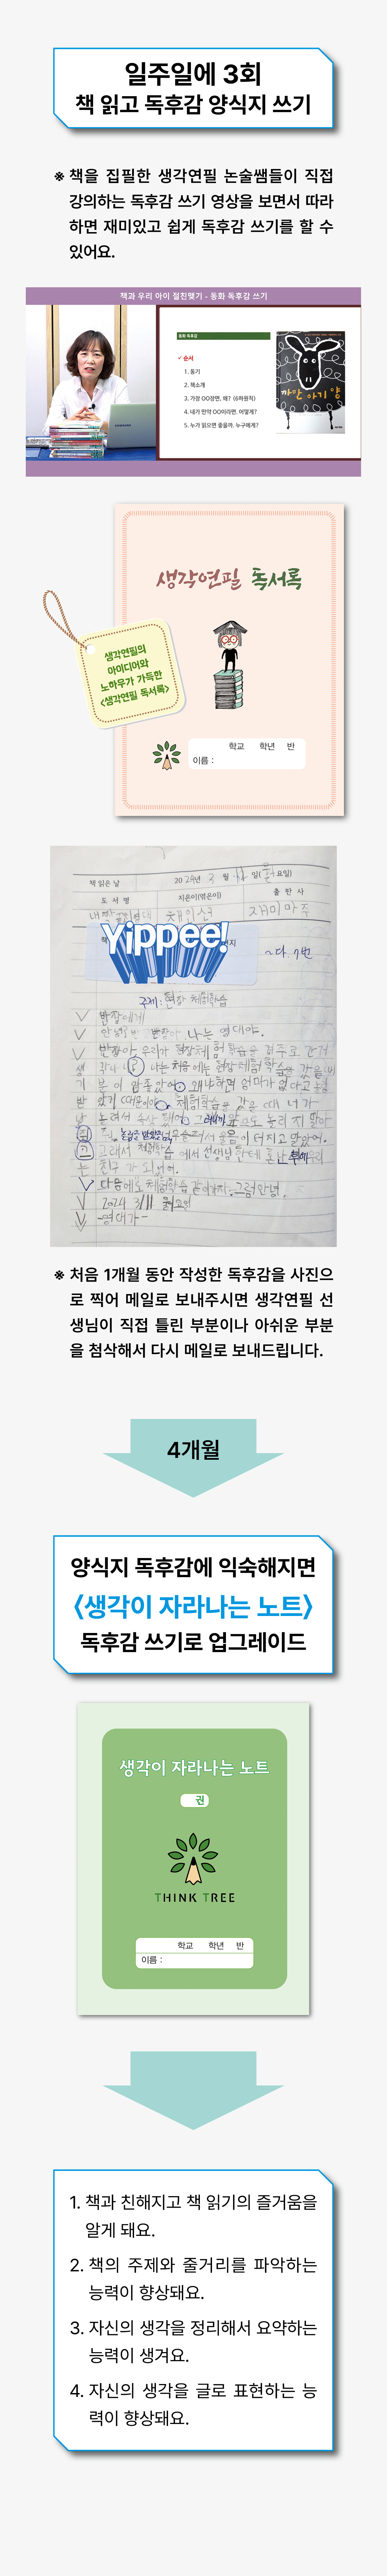 일주일에 3회
책 읽고 독후감 양식지 쓰기
※ 책을 집필한 생각연필 논술쌤들이 직접
강의하는 독후감 쓰기 영상을 보면서 따라
하면 재미있고 쉽게 독후감 쓰기를 할 수
있어요.
책과 우리 아이 절친맺기 - 동화 독후감 쓰기
동화 독후감
✓ 순서
1. 동기
2. 책소개
3. 가장 OO장면, 왜? (6하원칙)
4. 내가 만약 OO이라면, 어떻게?
5. 누가 읽으면 좋을까, 누구에게?
까만 아기 양
SAMSUNG
생각연필 독서록
생각연필의
아이디어와
노하우가 가득한
<생각연필 독서록>
학교 학년 반
이름 :
책 읽은 날 2024년 3 월 일( 요일)
도 서 명 지은이(엮은이) 출 판 사
내 짝꿍 최영대 채인선 재미마주
Yippee!
~다. 7번
주제: 현장 체험학습
반장에게
안녕, 반장아. 나는 영대야.
반장아 우리가 현장체험학습을 경주로 간
친구가 되었어.
다음에도 체험학습 같이가자. 그럼안녕.
2024 3/11 월요일
-영대가-
※ 처음 1개월 동안 작성한 독후감을 사진으
로 찍어 메일로 보내주시면 생각연필 선
생님이 직접 틀린 부분이나 아쉬운 부분
을 첨삭해서 다시 메일로 보내드립니다.
4개월
양식지 독후감에 익숙해지면
<생각이 자라나는 노트>
독후감 쓰기로 업그레이드
생각이 자라나는 노트
권
THINK TREE
학교 학년 반
이름 :
1. 책과 친해지고 책 읽기의 즐거움을
알게 돼요.
2. 책의 주제와 줄거리를 파악하는
능력이 향상돼요.
3. 자신의 생각을 정리해서 요약하는
능력이 생겨요.
4. 자신의 생각을 글로 표현하는 능
력이 향상돼요.